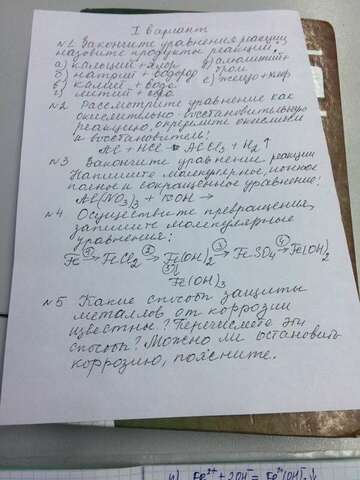 I вариант
№1 Закончите уравнения реакций,
назовите продукты реакций.
а) кальций + хлор д) алюминий +
б) натрий + водород хром
в) калий + вода е) железо + хлор
г) литий + вода
№2 Рассмотрите уравнение как
окислительно-восстановительную
реакцию, определите окислитель
и восстановитель:
Al + HCl → AlCl3 + H2↑
№3 Закончите уравнение реакции
Напишите молекулярное, ионное
полное и сокращённое уравнение:
Al(NO3)3 + KOH →
№4 Осуществите превращения,
запишите молекулярные
уравнения:
Fe ①→ FeCl2 ②→ Fe(OH)2 ③→ FeSO4 ④→ Fe(OH)2
⑤↓
Fe(OH)3
№5 Какие способы защиты
металлов от коррозии
известны? Перечислите эти
способы? Можно ли остановить
коррозию, поясните.
Fe2+ + 2OH- = Fe2+(OH)-2↓